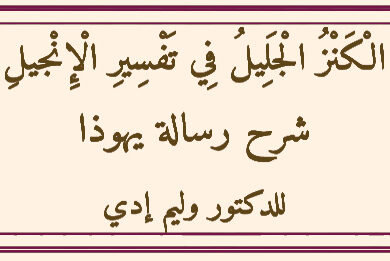 الْكَنْزُ الْجَلِيلُ فِي تَفْسِيرِ الْإِنْجِيلِ
شرح رسالة يهوذا
للدكتور وليم إدي